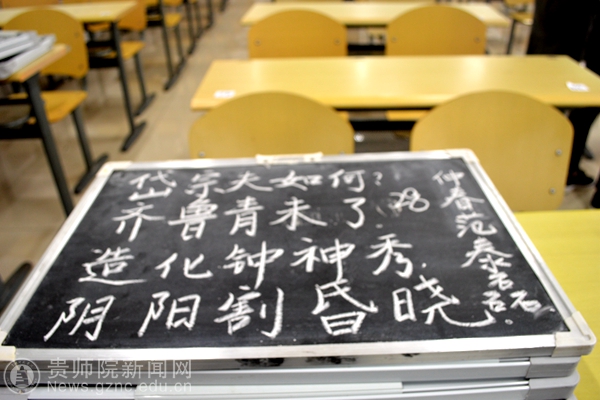 岱宗夫如何?
齐鲁青未了
造化钟神秀.
阴阳割昏晓
28
仲春范泰磊.
贵师院新闻网
News.gznc.edu.cn